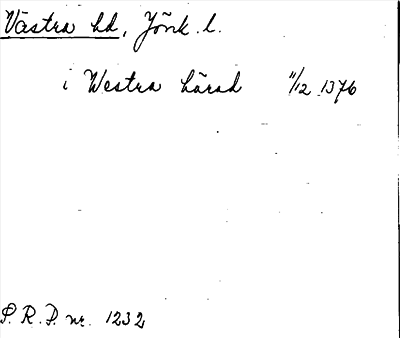 Västra hd, Jönk. l.
i Westra härad 11/12 1376
P. R. P. nr. 1232